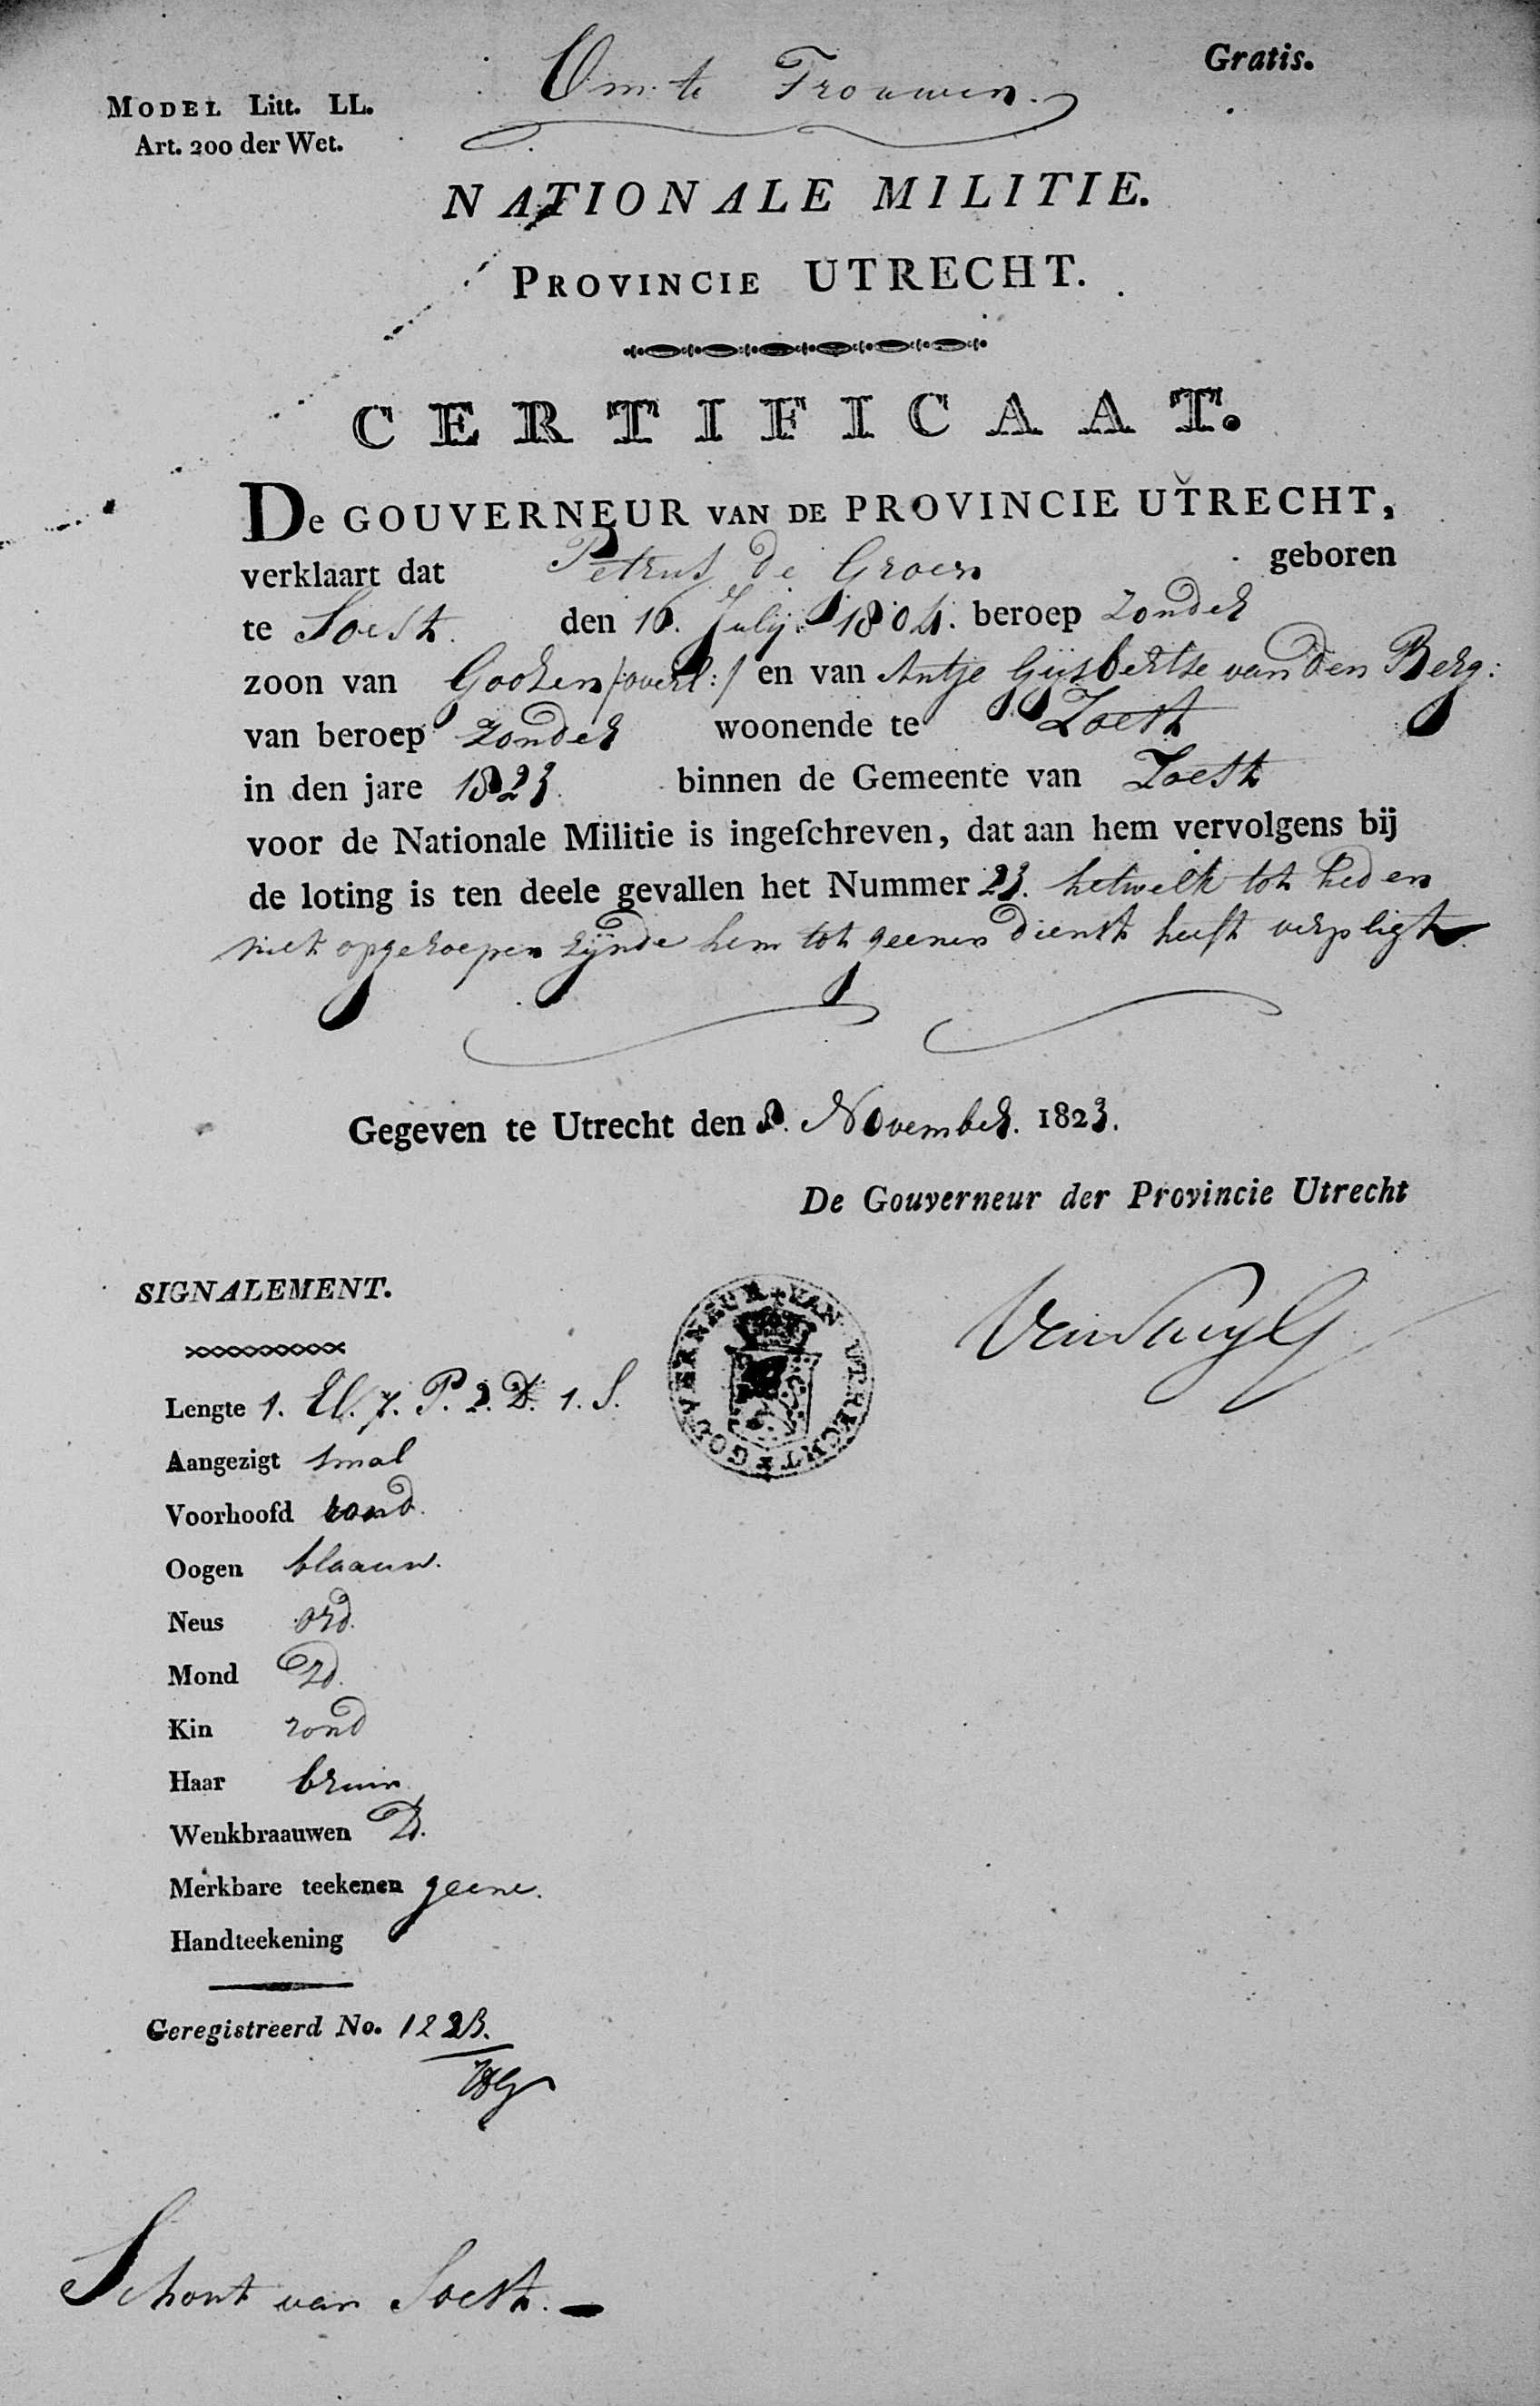 Om te Trouwen.
Gratis.
MODEL Litt. LL.
Art. 200 der Wet.
NATIONALE MILITIE.
PROVINCIE UTRECHT.
CERTIFICAAT.
De GOUVERNEUR VAN DE PROVINCIE UTRECHT,
verklaart dat Petrus de Groen geboren
te Soest. den 16. July 1804. beroep zonder
zoon van Goosen /:overl:/ en van Antje Gijsbertse van den Berg:
van beroep zonder woonende te Zoest
in den jare 1823. binnen de Gemeente van Zoest
voor de Nationale Militie is ingeſchreven, dat aan hem vervolgens bij
de loting is ten deele gevallen het Nummer 23. hetwelk tot heden
niet opgeroepen zijnde hem tot geenen dienst heeft verpligt.
Gegeven te Utrecht den 8. November. 1823.
De Gouverneur der Provincie Utrecht
SIGNALEMENT.
GOUVERNEUR VAN UTRECHT
Lengte 1. El. 7. P. 2. D. 1. S.
Aangezigt smal
Voorhoofd rond.
Oogen blaauw.
Neus ord.
Mond D.
Kin rond
Haar bruin
Wenkbraauwen D.
Merkbare teekenen geene.
Handteekening
Geregistreerd No. 1223.
Schout van Soest.